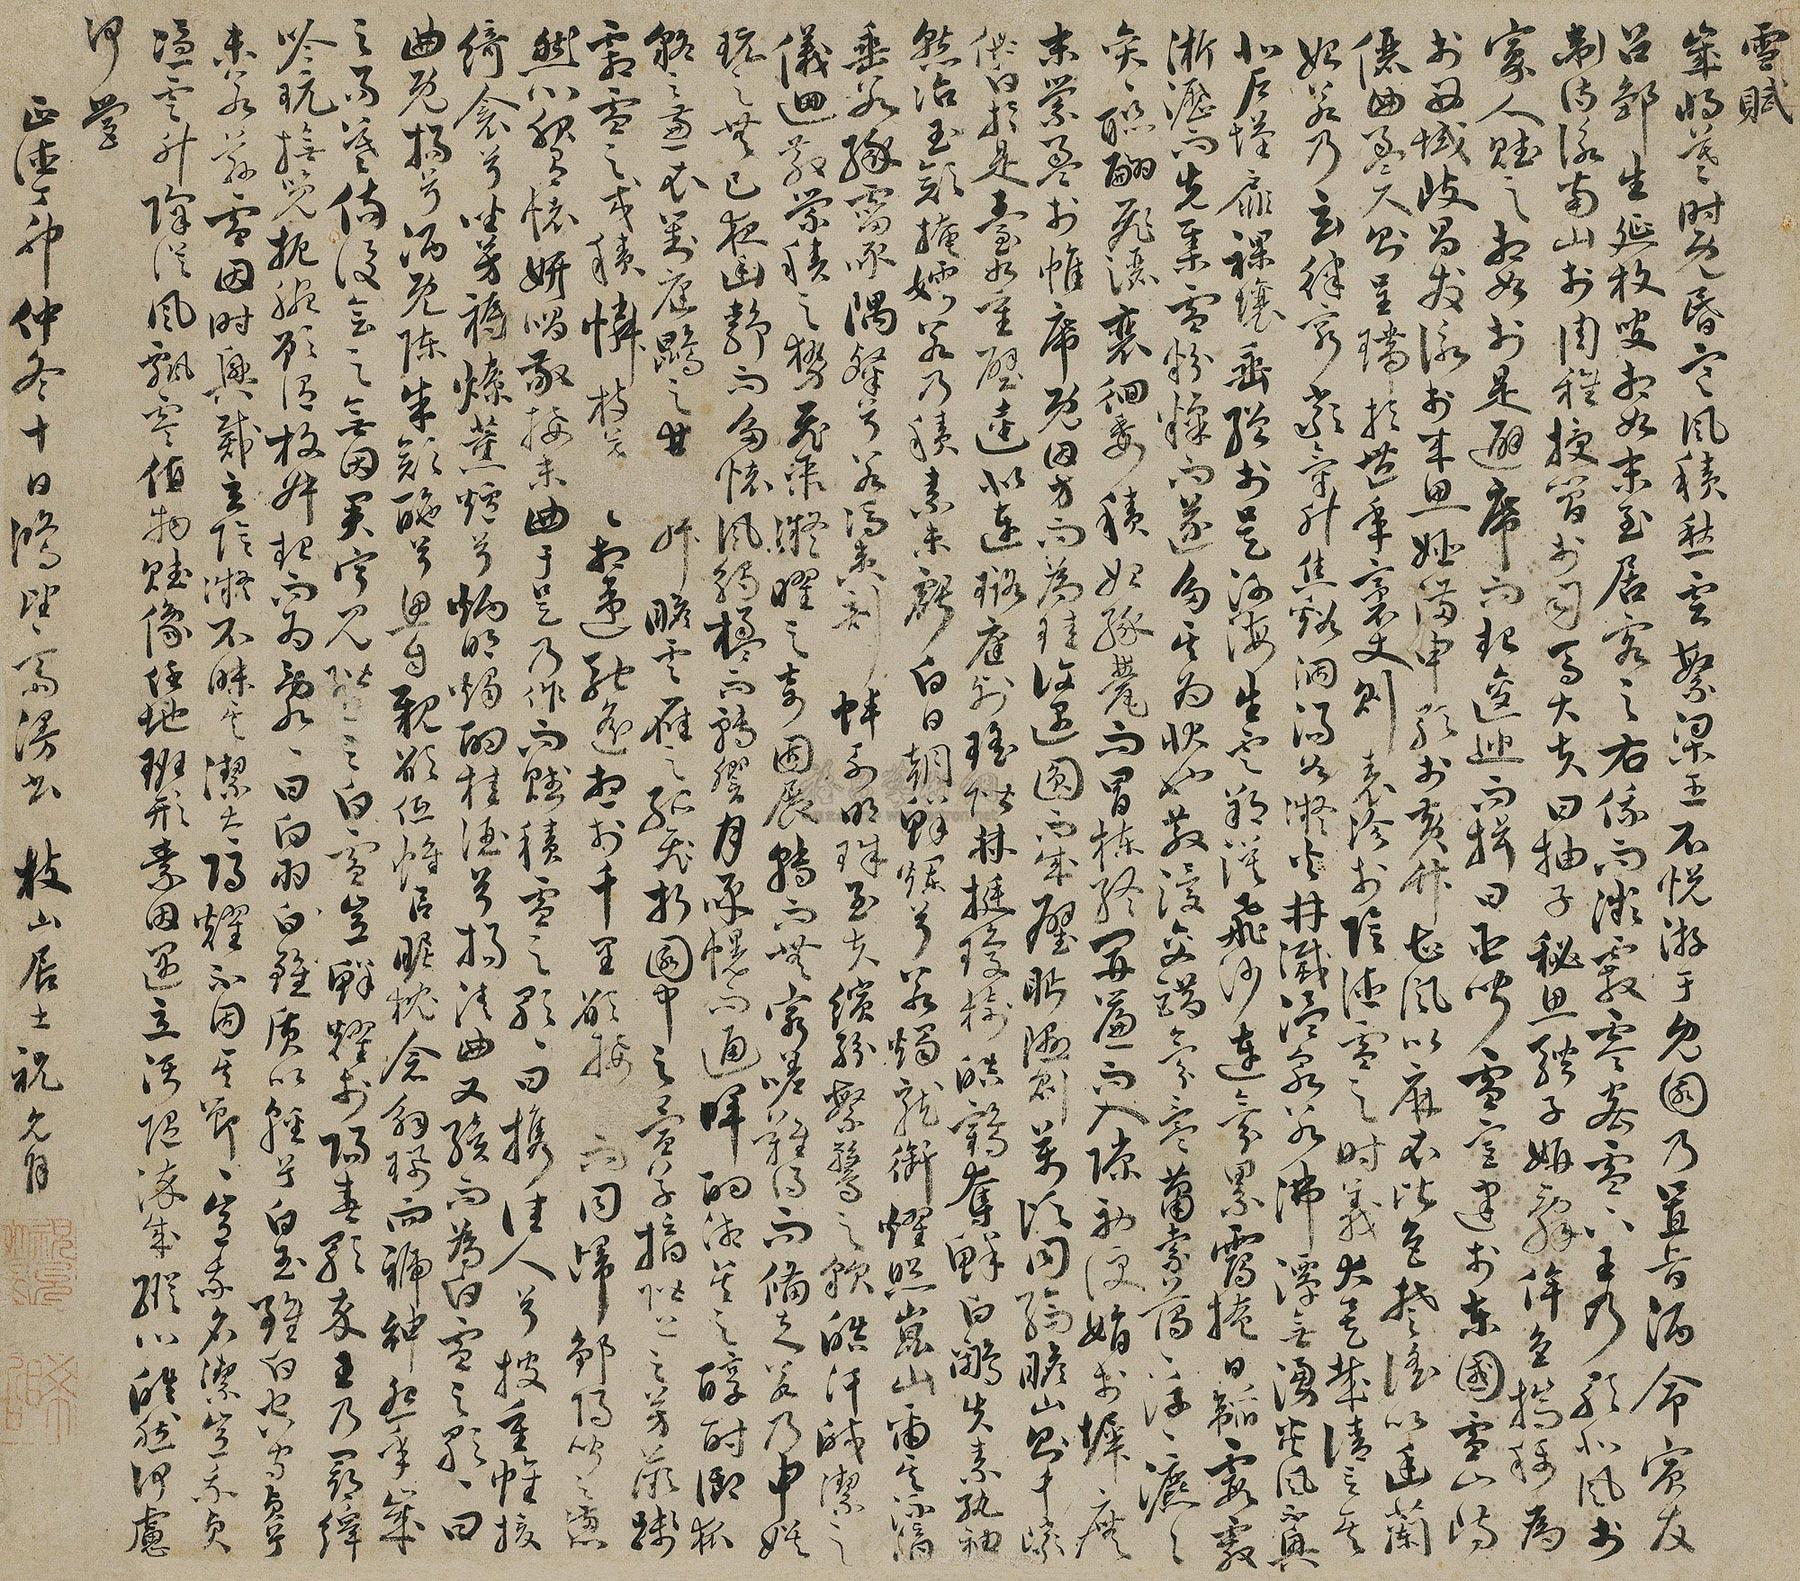 雪賦
歲將暮時既昏寒風積愁雲繁梁王不悅游于兔園乃置旨酒命賓友
召鄒生延枚叟相如末至居客之右俄而微霰零密雪下王乃歌北風於
衛詩詠南山於周雅授簡於司馬大夫曰抽子秘思騁子妍辭侔色揣稱為
寡人賦之相如於是避席而起逡巡而揖曰臣聞雪宮建於東國雪山峙
於西域岐昌發詠於來思姬滿申歌於黃竹曹風以麻衣比色楚謠以幽蘭
儷曲盈尺則呈瑞於豐年袤丈則表沴於陰德雪之時義大矣哉請言其
始若乃玄律窮嚴氣升焦谿涸湯谷凝火井滅溫泉冰沸潭無湧炎風不興
北戶墐扉裸壤垂繒於是河海生雲朔漠飛沙連氛累靄掩日韜霞霰
淅瀝而先集雪粉糅而遂多其為狀也散漫交錯氛氳蕭索藹藹浮浮瀌瀌
奕奕聯翩飛灑裴徊委積始緣甍而冒棟終開簾而入隙初便娟於墀廡
末縈盈於帷席既因方而為珪亦遇圓而成璧眄隰則萬頃同縞瞻山則千巖
俱白於是臺如重璧逵似連璐庭列瑤階林挺瓊樹皓鶴奪鮮白鷳失素紈袖
慙冶玉顏掩姱若乃積素未虧白日朝鮮爛兮若燭龍銜燿照崑山爾其流滴
垂冰緣霤承隅粲兮若馮夷剖蚌列明珠至夫繽紛繁騖之貌皓汗皦潔之
儀迴散縈積之勢飛聚凝曜之奇固展轉而無窮嗟難得而備知若乃申娛
玩之無已夜幽靜而多懷風觸楹而轉響月承幌而通暉酌湘吳之醇酎御狐
貉之兼衣對庭鵾之雙舞瞻雲雁之孤飛折園中之萱草摘階上之芳薇踐
霜雪之交積憐枝葉之相違馳遙思於千里願接手而同歸鄒陽聞之懣
然心服有懷妍唱敬接末曲于是乃作而賦積雪之歌歌曰攜佳人兮披重幄援
綺衾兮坐芳褥燎薰爐兮炳明燭酌桂酒兮揚清曲又續而為白雪之歌歌曰
曲既揚兮酒既陳朱顏酡兮思自親願低帷以昵枕念解珮而褫紳怨年歲
之易暮傷後會之無因君寧見階上之白雪豈鮮耀於陽春歌卒王乃尋繹
吟玩撫覽扼腕顧謂枚叔起而為亂亂曰白羽雖白質以輕兮白玉雖白空守貞兮
未若茲雪因時興滅玄陰凝不昧其潔太陽耀不固其節節豈我名潔豈我貞
憑雲升降從風飄零值物賦像任地班形素因遇立污隨染成縱心皓然何慮
何營
正德丁卯仲冬十日 枝山居士祝允明